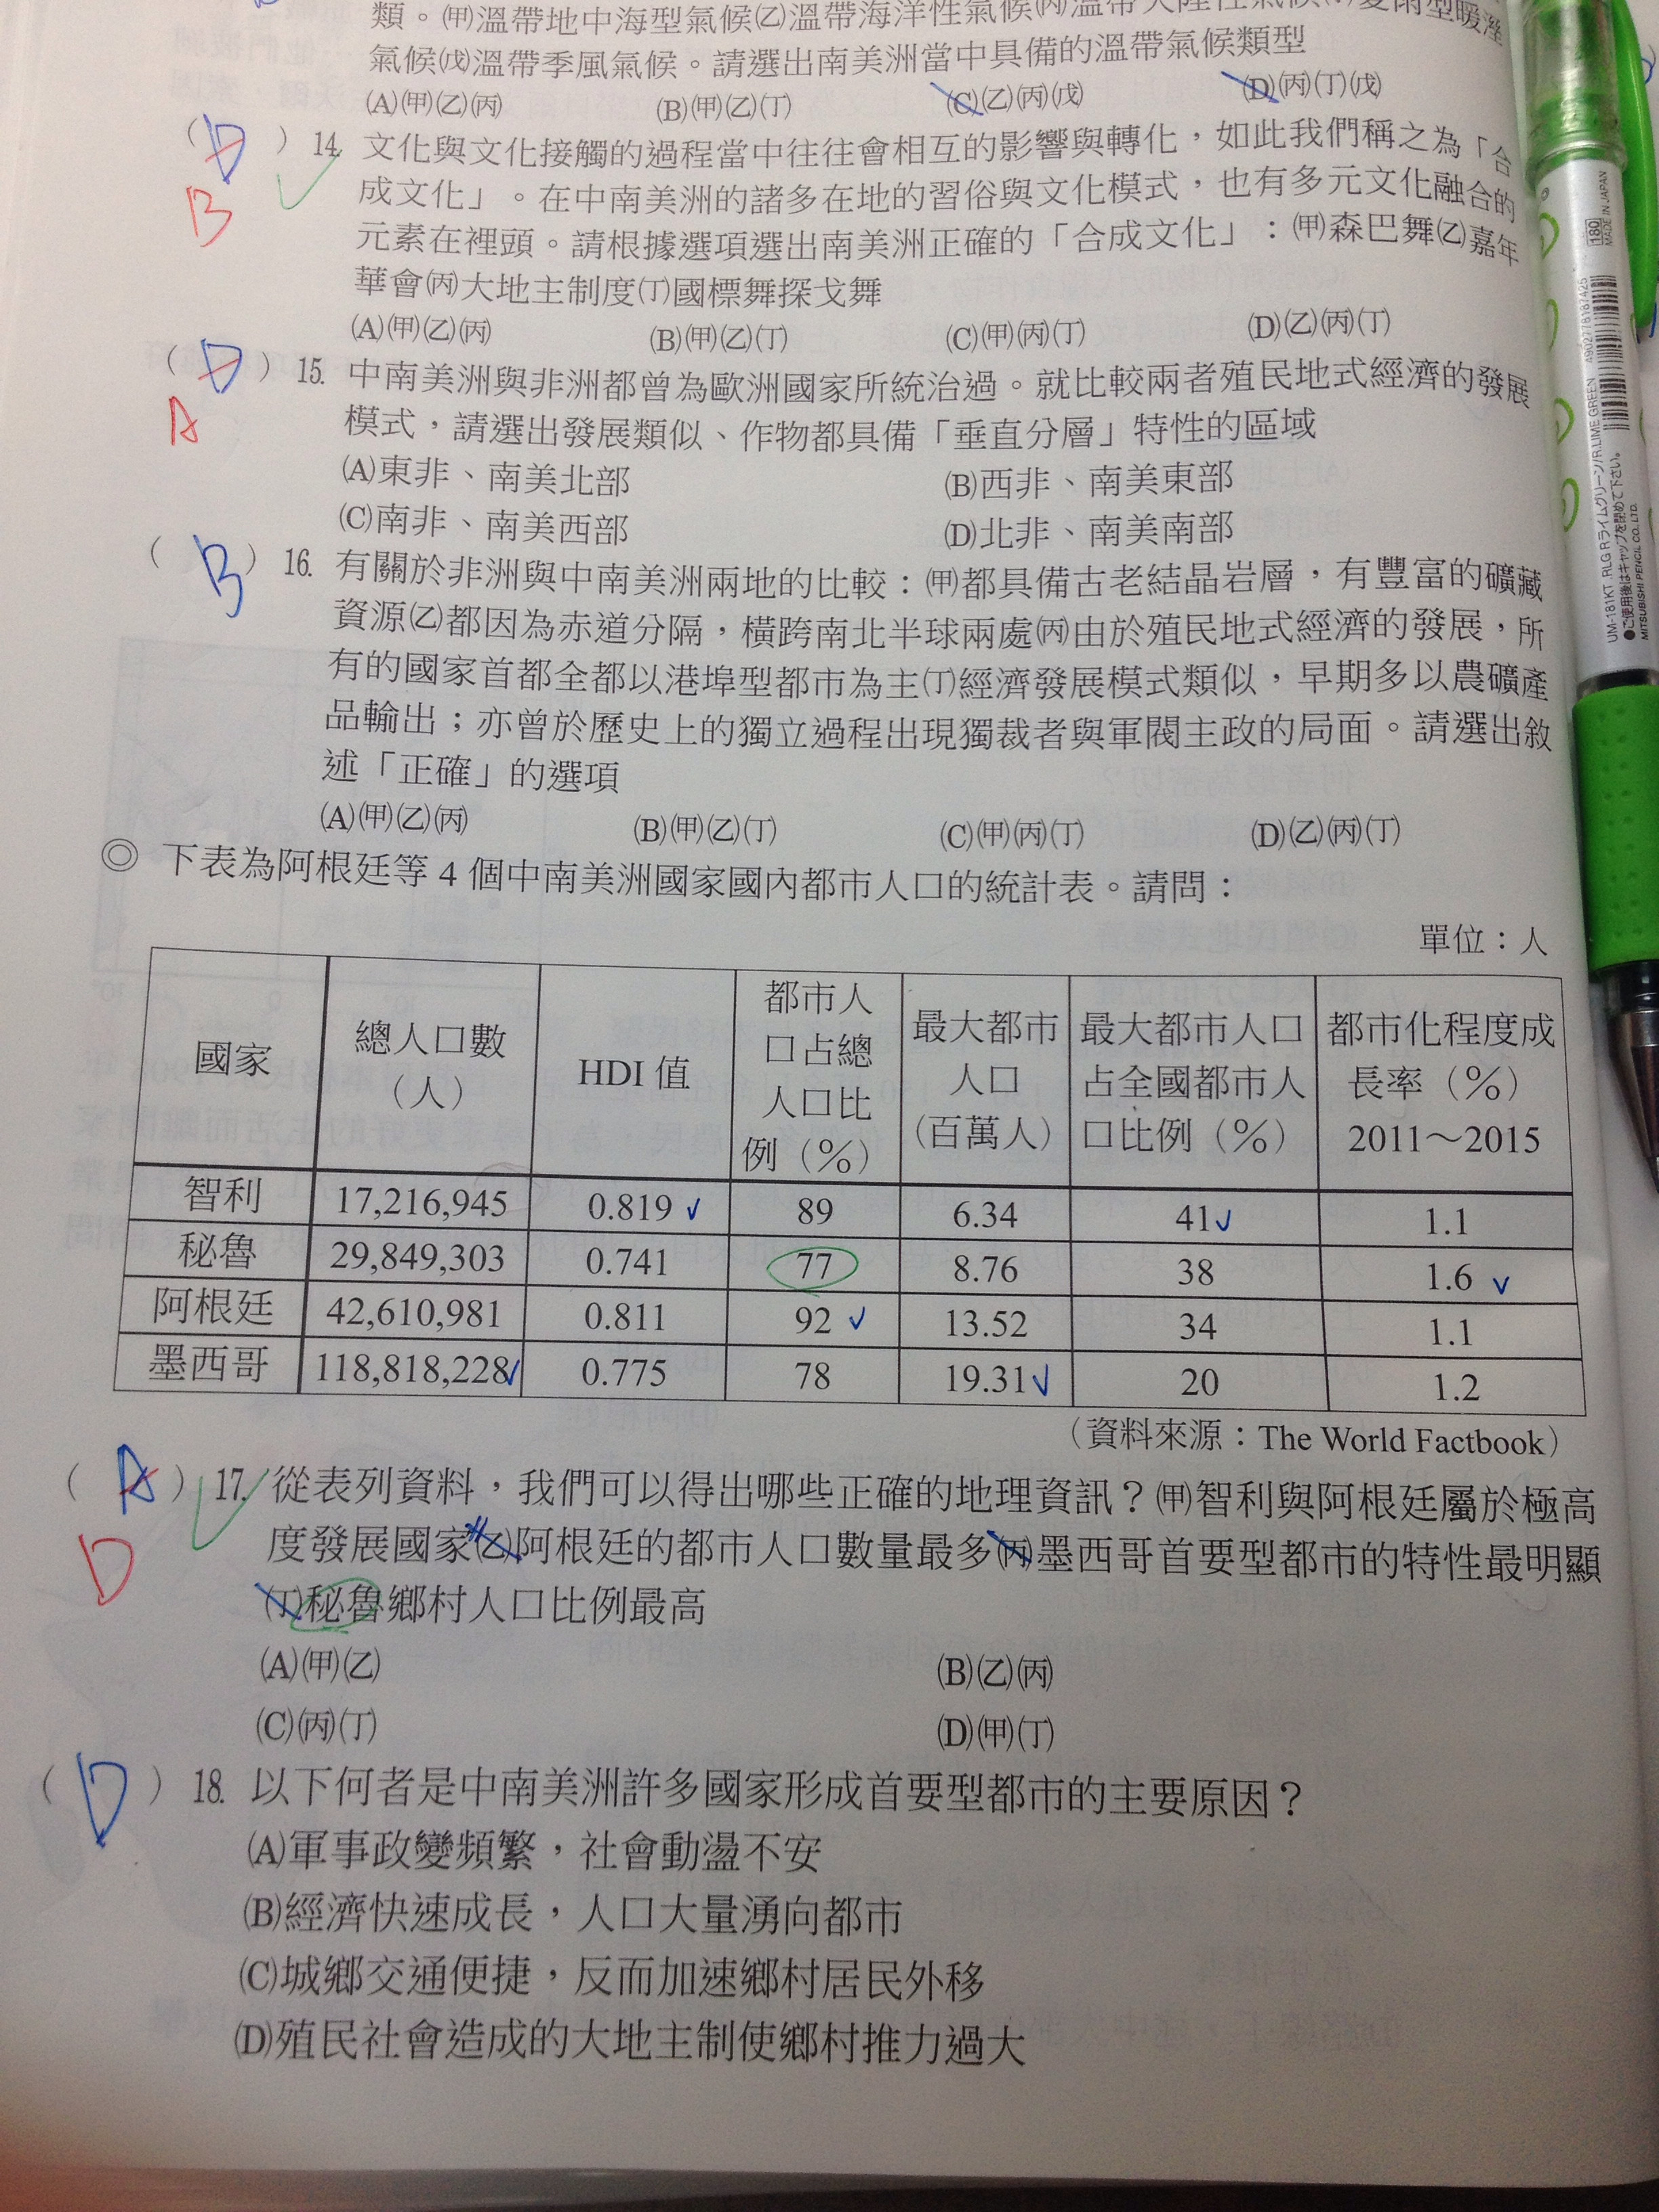 類。㈙溫帶地中海型氣候㈚溫帶海洋性氣候
氣候(戊)溫帶季風氣候。請選出南美洲當中具備的溫帶氣候類型
(A)(甲)(乙)(丙) (B)(甲)(乙)(丁) (C)(乙)(丙)(戊) (D)(丙)(丁)(戊)
(D) 14. 文化與文化接觸的過程當中往往會相互的影響與轉化，如此我們稱之為「合
B
成文化」。在中南美洲的諸多在地的習俗與文化模式，也有多元文化融合的
元素在裡頭。請根據選項選出南美洲正確的「合成文化」：(甲)森巴舞(乙)嘉年
華會(丙)大地主制度(丁)國標舞探戈舞
(A)(甲)(乙)(丙) (B)(甲)(乙)(丁) (C)(甲)(丙)(丁) (D)(乙)(丙)(丁)
(D) 15. 中南美洲與非洲都曾為歐洲國家所統治過。就比較兩者殖民地式經濟的發展
A
模式，請選出發展類似、作物都具備「垂直分層」特性的區域
(A)東非、南美北部 (B)西非、南美東部
(C)南非、南美西部 (D)北非、南美南部
(B) 16. 有關於非洲與中南美洲兩地的比較：(甲)都具備古老結晶岩層，有豐富的礦藏
資源(乙)都因為赤道分隔，橫跨南北半球兩處(丙)由於殖民地式經濟的發展，所
有的國家首都全都以港埠型都市為主(丁)經濟發展模式類似，早期多以農礦產
品輸出；亦曾於歷史上的獨立過程出現獨裁者與軍閥主政的局面。請選出敘
述「正確」的選項
(A)(甲)(乙)(丙) (B)(甲)(乙)(丁) (C)(甲)(丙)(丁) (D)(乙)(丙)(丁)
◎ 下表為阿根廷等 4 個中南美洲國家國內都市人口的統計表。請問：
單位：人
國家 總人口數（人） HDI 值 都市人口占總人口比例（％） 最大都市人口（百萬人） 最大都市人口占全國都市人口比例（％） 都市化程度成長率（％）2011～2015
智利 17,216,945 0.819 89 6.34 41 1.1
秘魯 29,849,303 0.741 77 8.76 38 1.6
阿根廷 42,610,981 0.811 92 13.52 34 1.1
墨西哥 118,818,228 0.775 78 19.31 20 1.2
（資料來源：The World Factbook）
(A) 17. 從表列資料，我們可以得出哪些正確的地理資訊？(甲)智利與阿根廷屬於極高
D
度發展國家(乙)阿根廷的都市人口數量最多(丙)墨西哥首要型都市的特性最明顯
(丁)秘魯鄉村人口比例最高
(A)(甲)(乙) (B)(乙)(丙)
(C)(丙)(丁) (D)(甲)(丁)
(D) 18. 以下何者是中南美洲許多國家形成首要型都市的主要原因？
(A)軍事政變頻繁，社會動盪不安
(B)經濟快速成長，人口大量湧向都市
(C)城鄉交通便捷，反而加速鄉村居民外移
(D)殖民社會造成的大地主制使鄉村推力過大
180
MADE IN JAPAN
4902778187425
MITSUBISHI PENCIL CO., LTD.